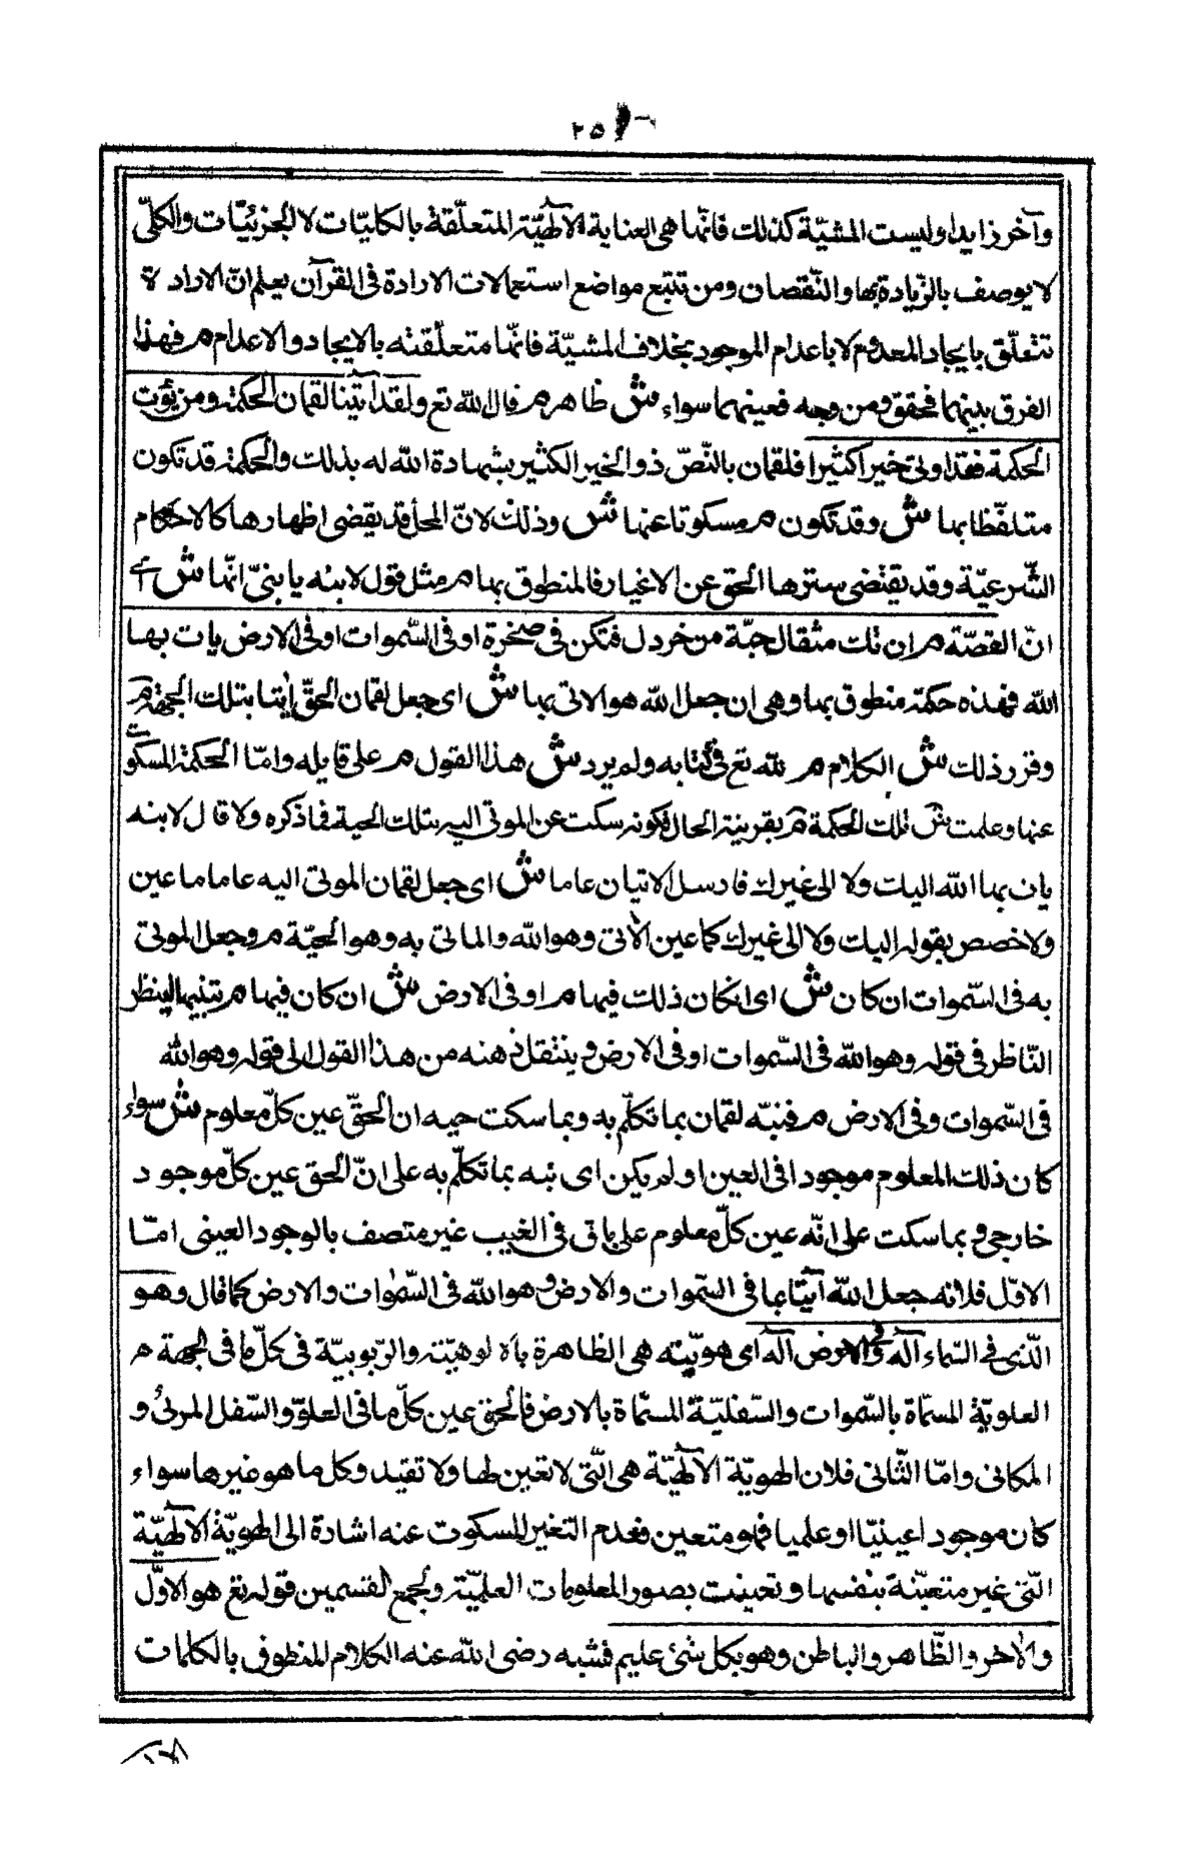 ٢٥
وآخر زايدا وليست المشيّة كذلك فانّها هى العناية الآلهيّة المتعلّقة بالكليّات لا الجزئيّات والكلّى
لا يوصف بالزّيادة بها والنّقصان ومن تتبع مواضع استعمالات الارادة فى القرآن يعلم انّ الارادة
تتعلّق بايجاد المعدوم لا باعدام الموجود بخلاف المشيّة فانّها متعلّقته بالايجاد والاعدام م فهذا
الفرق بينهما فحقق ومن وجه فعينهما سواء ش ظاهر م قال الله تع ولقد آتينا لقمان الحكمة ومن يؤت
الحكمة فقد اوتى خيرا كثيرا فلقمان بالنّصّ ذو الخير الكثير بشهادة الله له بذلك والحكمة قد تكون
متلفّظا بها ش وقد تكون م مسكوتا عنها ش وذلك لانّ المحل قد يقضى اظهارها كالاحكام
الشّرعيّة وقد يقتضى سترها الحق عن الاغيار فالمنطوق بها م مثل قول لابنه يا بنىّ انّها ش اى
انّ القصّة م ان تك مثقال حبّة من خردل فتكن فى صخرة او فى السّموات او فى الارض يات بها
الله فهذه حكمة منطوق بها وهى ان جعل الله هو الاتى بها ش اى جعل لقمان الحقّ آيتا بتلك الجهة م
وقرر ذلك ش الكلام م لله تع فى كتابه ولم يرد ش هذا القول م على قايله وامّا الحكمة المسكوت
عنها وعلمت ش تلك الحكمة م بقرينة الحال فكونه سكت عن الموتى اليه بتلك الحبة فما ذكره ولا قال لابنه
يات بها الله اليك ولا الى غيرك فارسل الاتيان عاما ش اى جعل لقمان الموتى اليه عاما ما عين
ولا خصص بقوله اليك ولا الى غيرك كما عين الآتى وهو الله والماتى به وهو الحبّة م وجعل الموتى
به فى السّموات ان كان ش اى انكان ذلك فيها م او فى الارض ش ان كان فيها م تنبيها لينظر
النّاظر فى قوله وهو الله فى السّموات او فى الارض وينتقل ذهنه من هذا القول الى قوله وهو الله
فى السّموات وفى الارض م فنبّه لقمان بما تكلّم به وبما سكت ان الحقّ عين كلّ معلوم ش سواء
كان ذلك المعلوم موجودا فى العين او لم يكن اى نبه بما تكلّم به على انّ الحق عين كلّ موجود
خارجى وبما سكت على انّه عين كلّ معلوم على باقى فى الغيب غير متصف بالوجود العينى امّا
الاوّل فلانه جعل الله آتيّا بما فى السّموات والارض وهو الله فى السّموات والارض كما قال وهو
الّذى فى السّماء آله وفى الارض آله اى هويّته هى الظاهرة بالالوهيّته والرّبوبيّة فى كلّ ما فى الجهة م
العلويّة المسمّاة بالسّموات والسّفليّة المسمّاة بالارض فالحق عين كلّ ما فى العلوّ والسّفل المرتى و
المكانى وامّا الثّانى فلان الهويّة الآلهيّة هى الّتى لا تعين لها ولا تقيد وكل ما هو غيرها سواء
كان موجودا عينيّا او علميا فهو متعين فعدم التغير للمسكوت عنه اشارة الى الهويّة الآلهيّة
الّتى غير متعيّنة بنفسها وتعينت بصور المعلومات العلميّة ولجمع القسمين قوله تع هو الاوّل
والآخر والظّاهر والباطن وهو بكل شئ عليم فشبه رضى الله عنه الكلام المنطوق بالكلمات